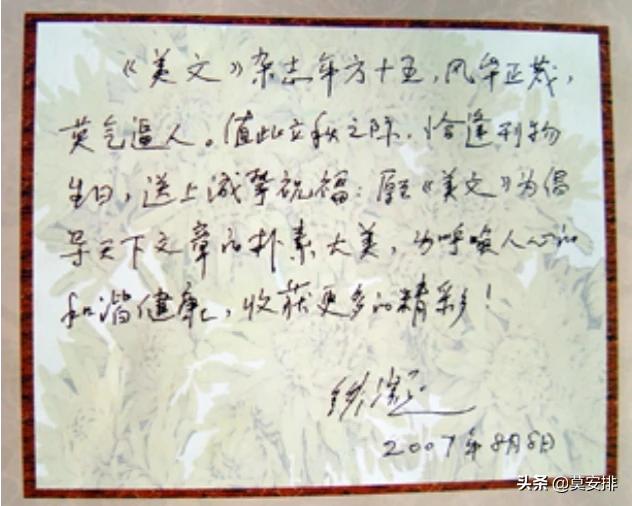 《美文》杂志年方十五，风华正茂，
英气逼人。值此立秋之际，恰逢刊物
生日，送上诚挚祝福：愿《美文》为倡
导天下文章的朴素大美，为呼唤人心的
和谐健康，收获更多的精彩！
铁凝
2007年8月8日
头条 @莫安排